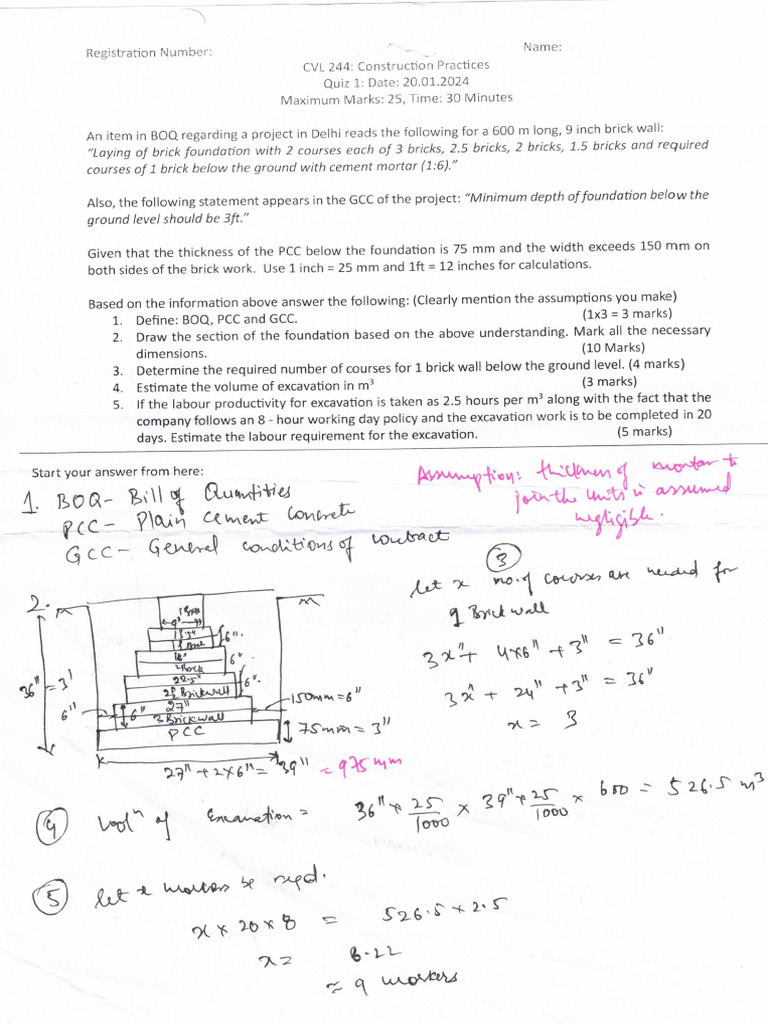 Registration Number:
Name:
CVL 244: Construction Practices
Quiz 1: Date: 20.01.2024
Maximum Marks: 25, Time: 30 Minutes
An item in BOQ regarding a project in Delhi reads the following for a 600 m long, 9 inch brick wall:
“Laying of brick foundation with 2 courses each of 3 bricks, 2.5 bricks, 2 bricks, 1.5 bricks and required
courses of 1 brick below the ground with cement mortar (1:6).”
Also, the following statement appears in the GCC of the project: “Minimum depth of foundation below the
ground level should be 3ft.”
Given that the thickness of the PCC below the foundation is 75 mm and the width exceeds 150 mm on
both sides of the brick work. Use 1 inch = 25 mm and 1ft = 12 inches for calculations.
Based on the information above answer the following: (Clearly mention the assumptions you make)
1. Define: BOQ, PCC and GCC. (1x3 = 3 marks)
2. Draw the section of the foundation based on the above understanding. Mark all the necessary
dimensions. (10 Marks)
3. Determine the required number of courses for 1 brick wall below the ground level. (4 marks)
4. Estimate the volume of excavation in m³ (3 marks)
5. If the labour productivity for excavation is taken as 2.5 hours per m³ along with the fact that the
company follows an 8 - hour working day policy and the excavation work is to be completed in 20
days. Estimate the labour requirement for the excavation. (5 marks)
Start your answer from here:
Assumption: thickness of mortar to
join the units is assumed
negligible.
1. BOQ- Bill of Quantities
PCC- Plain cement concrete
GCC- General conditions of contract
3
let x no. of courses are needed for
1 Brick wall
3x" + 4x6" + 3" = 36"
3x" + 24" + 3" = 36"
x = 3
2.
9"
6"
6"
22.5"
6"
27"
3 Brickwall
PCC
36" = 3'
6"
6"
150mm = 6"
75mm = 3"
27" + 2x6" = 39" = 975 mm
4 Vol^n of Excavation = 36" x 25/1000 x 39" x 25/1000 x 600 = 526.5 m³
5 let x workers be reqd.
x x 20 x 8 = 526.5 x 2.5
x = 8.22
≈ 9 workers